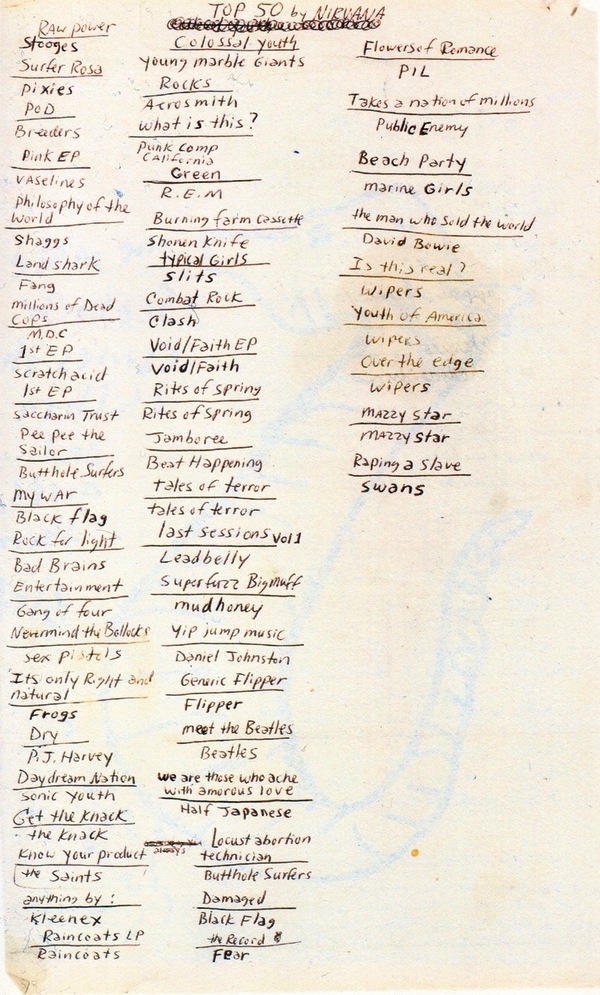 TOP 50 by NIRVANA
Raw power
Stooges
Surfer Rosa
Pixies
POD
Breeders
Pink EP
vaselines
Philosophy of the
World
Shaggs
Land shark
Fang
millions of Dead
Cops
M.D.C
1st EP
Scratch acid
1st EP
Saccharin Trust
Pee Pee the
Sailor
Butthole Surfers
My war
Black flag
Rock for light
Bad Brains
Entertainment
Gang of four
Nevermind the Bollocks
sex pistols
Its only Right and
natural
Frogs
Dry
P.J. Harvey
Daydream Nation
Sonic Youth
Get the Knack
the Knack
Know your product
the Saints
anything by:
Kleenex
Raincoats LP
Raincoats
Colossal youth
Young marble Giants
Rocks
Aerosmith
What is this?
Punk Comp
California
Green
R.E.M
Burning farm Cassette
Shonen Knife
typical Girls
Slits
Combat Rock
Clash
Void/Faith EP
Void/Faith
Rites of Spring
Rites of Spring
Jamboree
Beat Happening
tales of terror
tales of terror
last sessions vol 1
Leadbelly
Superfuzz Bigmuff
mudhoney
Yip jump music
Daniel Johnston
Generic Flipper
Flipper
meet the Beatles
Beatles
we are those who ache
with amorous love
Half Japanese
Locust abortion
technician
Butthole Surfers
Damaged
Black Flag
the Record
Fear
Flowers of Romance
PIL
Takes a nation of millions
Public Enemy
Beach Party
marine Girls
the man who sold the world
David Bowie
Is this real?
Wipers
Youth of America
Wipers
Over the edge
Wipers
Mazzy Star
Mazzy Star
Raping a Slave
Swans